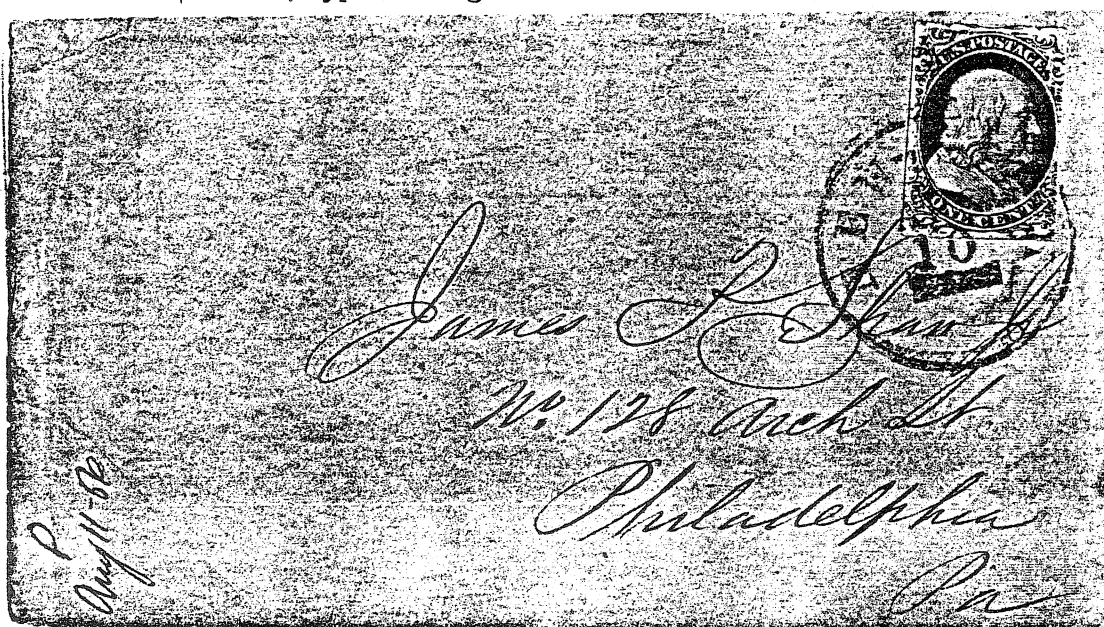 U.S. POSTAGE
ONE CENT
10
James T. Shaw Jr
No. 128 Arch St.
Philadelphia
Pa
P
Aug 11